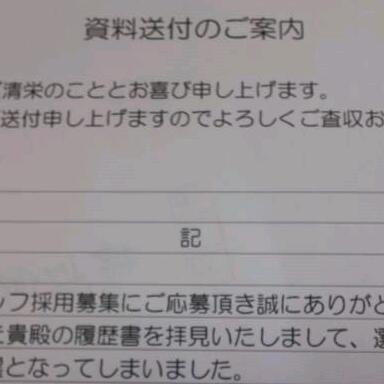 資料送付のご案内
清栄のこととお喜び申し上げます。
送付申し上げますのでよろしくご査収お
記
ッフ採用募集にご応募頂き誠にありがと
貴殿の履歴書を拝見いたしまして、選
となってしまいました。